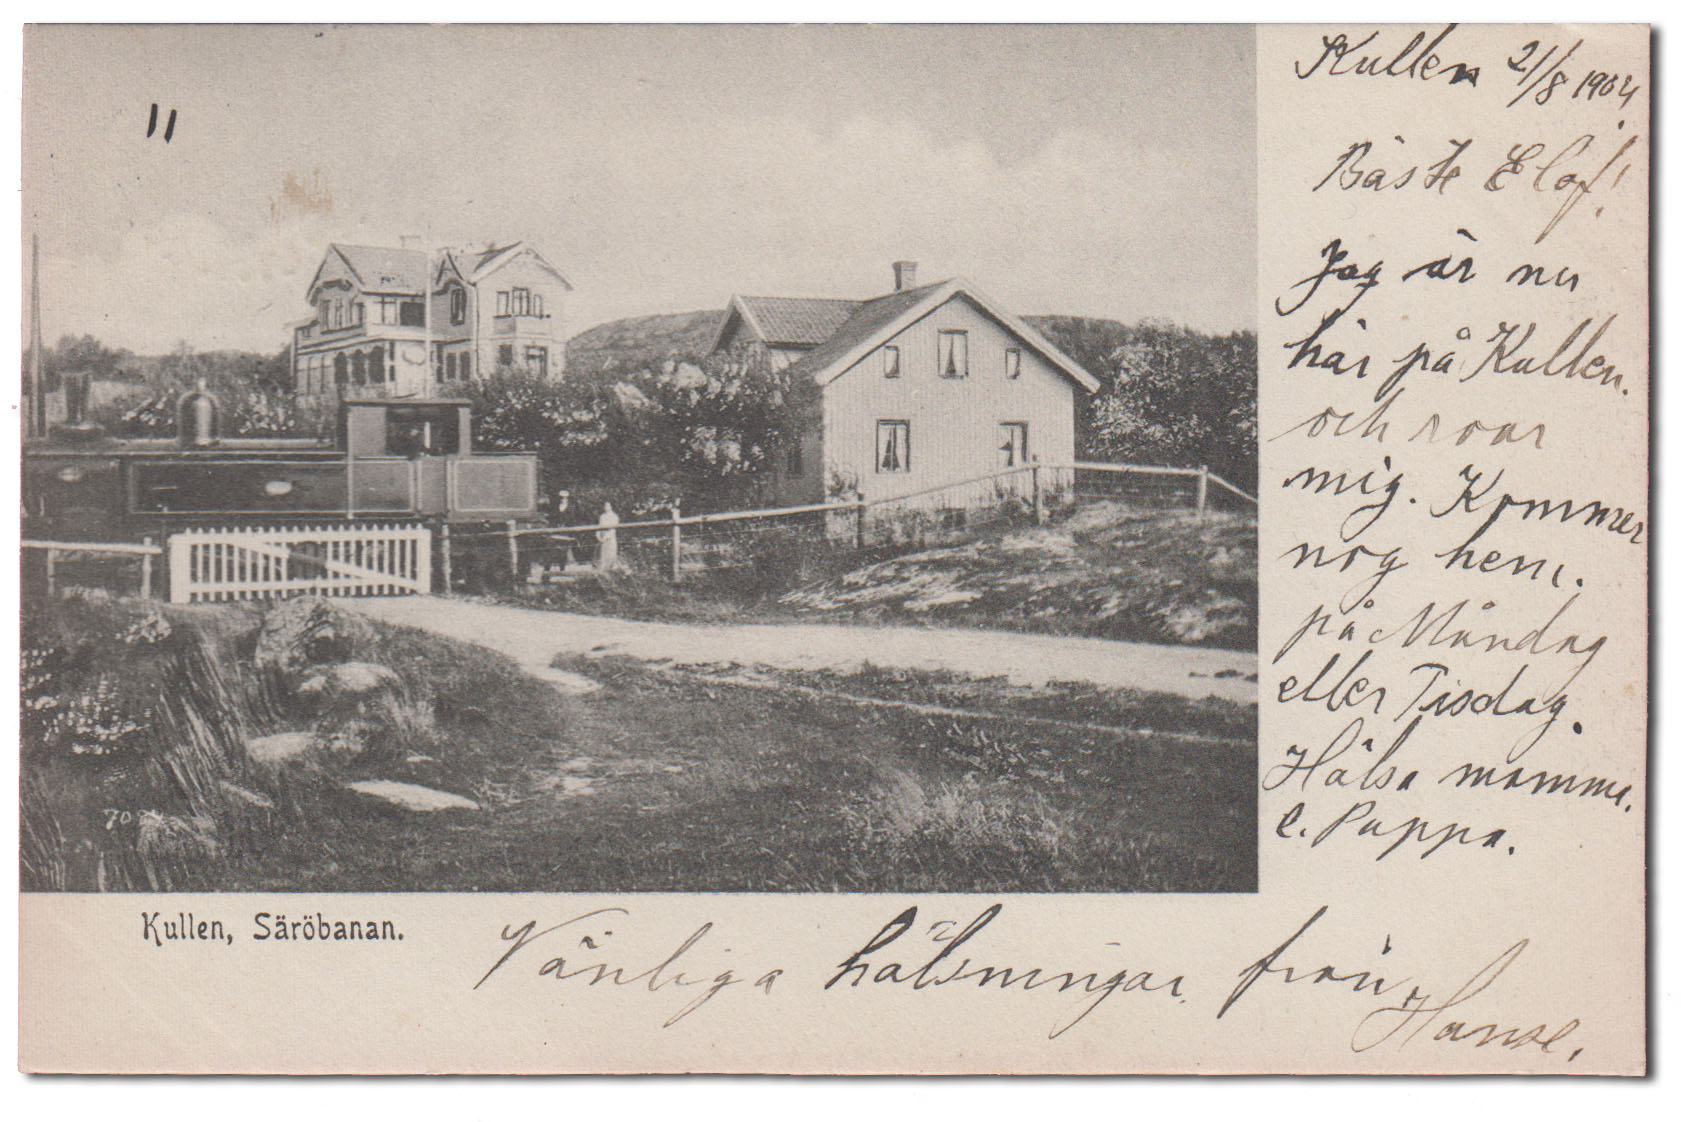 Kullen 21/8 1904.
Bäste Elof!
Jag är nu
här på Kullen.
och roar
mig. Kommer
nog hem.
på Måndag
eller Tisdag.
Hälsa mamma.
e. Pappa.
11
Kullen, Säröbanan.
Vänliga hälsningar från